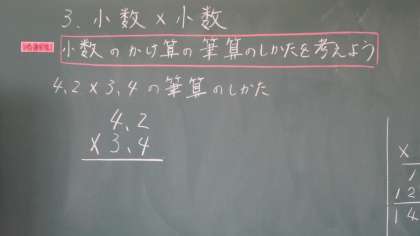 3. 小数×小数
小数のかけ算の筆算のしかたを考えよう
4.2×3.4の筆算のしかた
4.2
×3.4
×
1
12
14